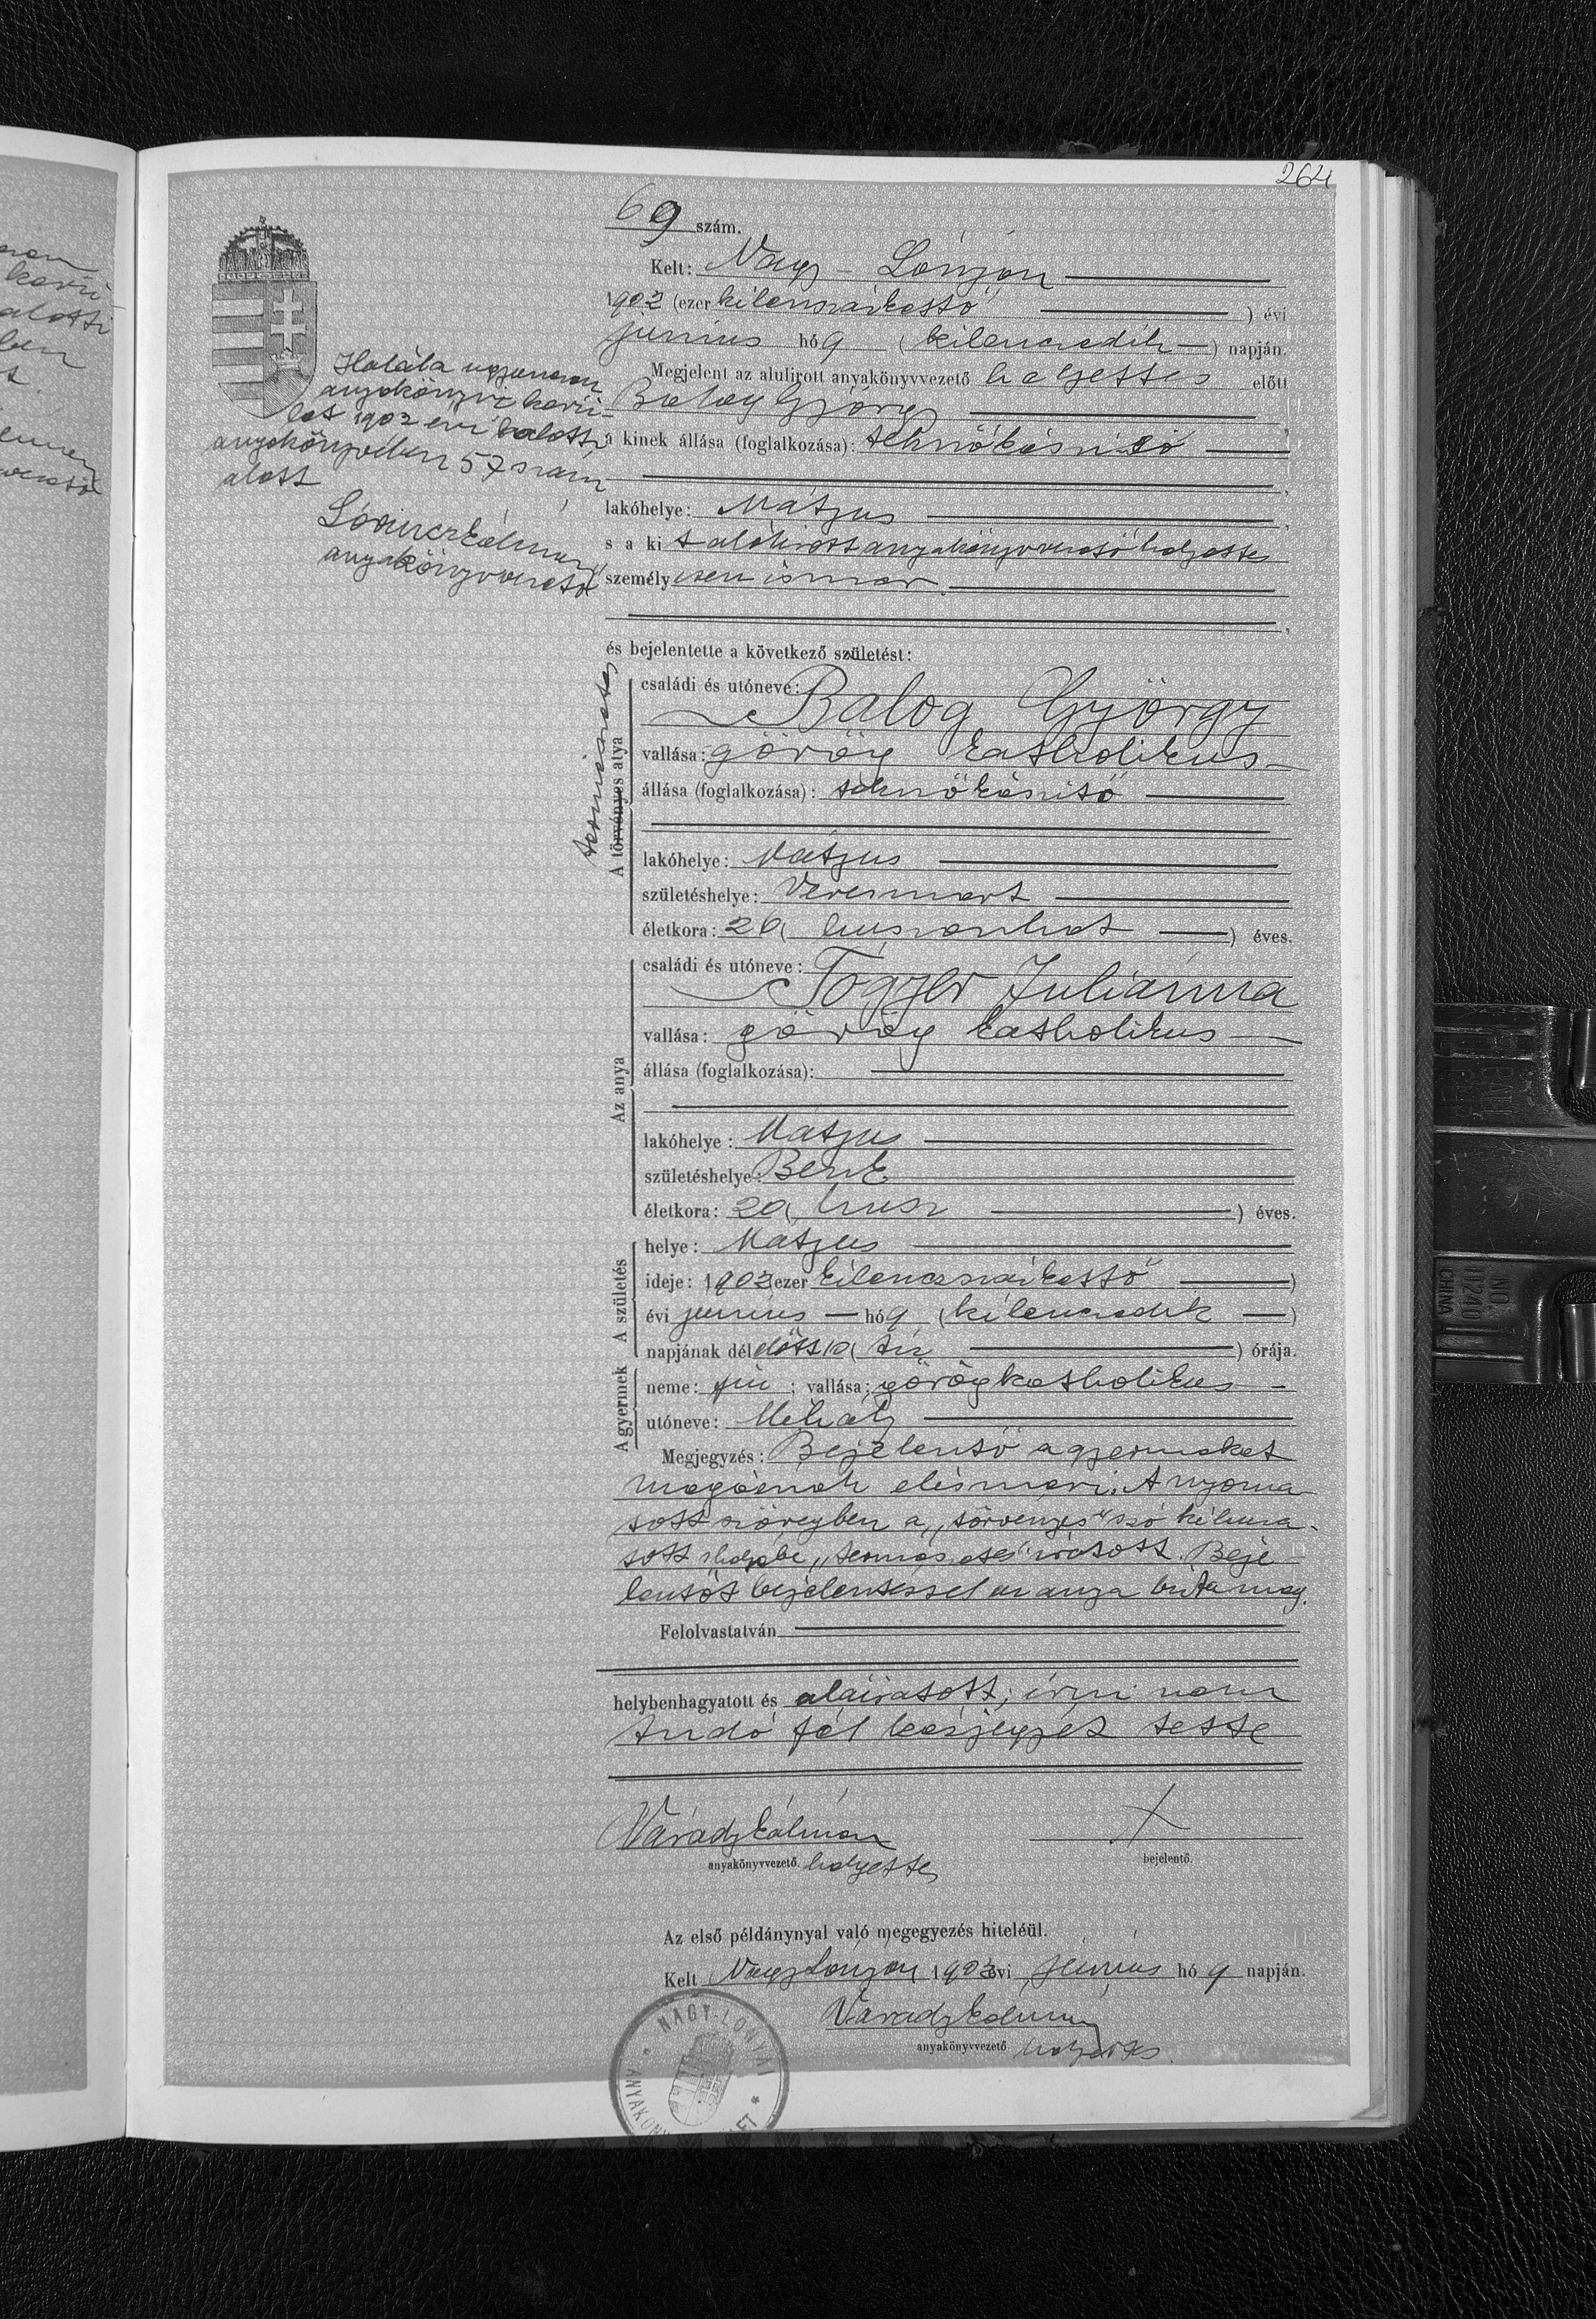 264
69 szám.
Kelt: Nagy-Lónyán
1902 (ezer kilenczszázkettő) évi
junius hó 9 (kilenczedik) napján.
Megjelent az alulirott anyakönyvvezető helyettes előtt
Balog György
a kinek állása (foglalkozása): teknőkészitő
lakóhelye: Mátyus
s a kit alólirott anyakönyvvezető helyettes
személyesen ismer,
és bejelentette a következő születést:
természetes
A törvényes atya
családi és utóneve:
Balog György
vallása: görög katholikus
állása (foglalkozása): teknőkészitő
lakóhelye: Mátyus
születéshelye: Veresmart
életkora: 26 (huszonhat) éves.
Az anya
családi és utóneve:
Tógyer Juliánna
vallása: görög katholikus
állása (foglalkozása):
lakóhelye: Mátyus
születéshelye: Benk
életkora: 20 (husz) éves.
A születés
helye: Mátyus
ideje: 1902 (ezer kilenczszázkettő)
évi junius hó 9 (kilenczedik)
napjának délelőtt 10 (tiz) órája.
A gyermek
neme: fiu; vallása: görög katholikus
utóneve: Mihály
Megjegyzés: Bejelentő a gyermeket
magáénak elismeri. A nyoma
tott szövegben a „törvényes" szó kihuza-
tott helyébe „természetes" iratott. Beje
lentőt bejelentéssel az anya bizta meg.
Felolvastatván
helybenhagyatott és aláiratott; irni nem
tudó fél kézjegyét tette
Várady Kálmán X
anyakönyvvezető helyettes bejelentő.
Az első példánynyal való megegyezés hiteléül.
Kelt Nagy Lónyán 1902 évi junius hó 9 napján.
Várady Kálmán
anyakönyvvezető helyettes
NAGY-LÓNYAI
Halála ugyanezen
anyakönyvi kerü-
let 1902 évi halotti
anyakönyvében 57 szám
alatt
Lőrincz Kálmán
anyakönyvvezető